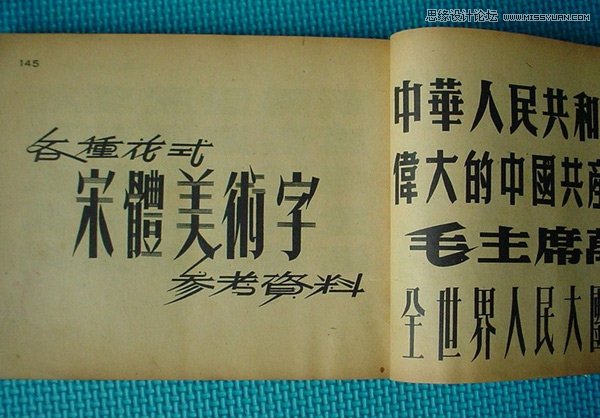 思缘设计论坛 WWW.MISSYUAN.COM
145
各種花式
宋體美術字
參考資料
中華人民共和
偉大的中國共產
毛主席萬
全世界人民大團